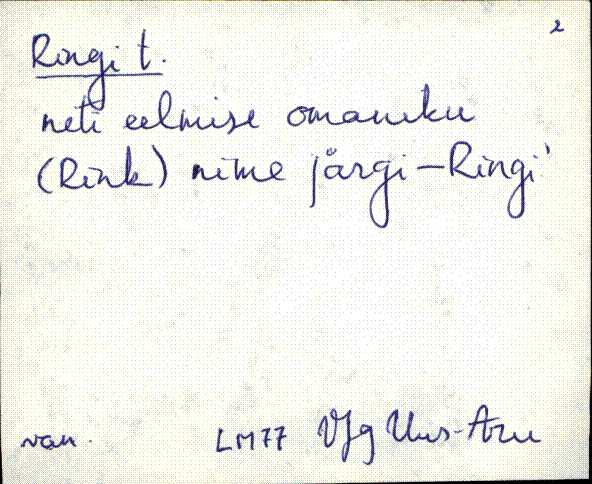 2
Ringi t.
neti eelmise omaniku
(Rink) nime järgi – Ringi'
van. LM77 VJg Uus-Aru